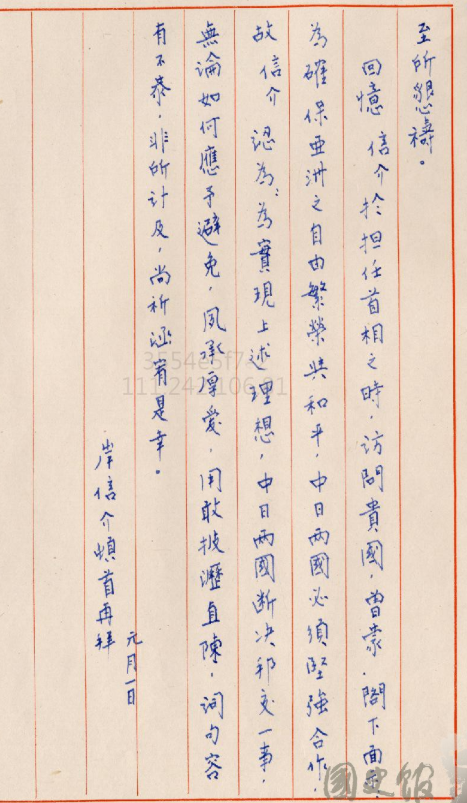 至所懇禱。
回憶 信介於担任首相之時,访問貴國,曾蒙.閣下面
為確保亜洲之自由繁榮共和平,中日两國必須堅強合作.
故 信介 認為:為實現上述理想,中日两國断决邦交一事.
無論如何應予避免.夙承厚愛.用敢披瀝直陳.詞句容
有不恭.非所计及.尚祈涵宥是幸。
元月一日
岸信介頓首再拜
3554e5f7
111.242.106.21
國史館